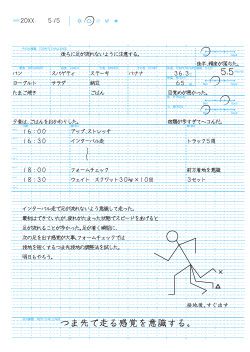 20XX 5/5
後ろに足が流れないように注意する。
後半、精度が落ちた。
パン スパゲティ ステーキ バナナ 36.3 5.5
ヨーグルト サラダ 納豆 65
たまご焼き ごはん 目覚めが悪かった。
夕食は、ごはんをおかわりした。
宿題が今すぎてへコんだ。
16:00 アップ、ストレッチ
16:30 インターバル走 トラック5周
18:00 フォームチェック 前方着地を意識
18:30 ウェイト スクワット30kg×10回 3セット
インターバル走で足が流れないよう意識して走った。
最初はできていたが、疲れがたまった状態でスピードをあげると
足が流れることが多かった。足が着く瞬間に、
次の足を出す感覚が大事。フォームチェックでは
接地を軽くするつま先接地の調整法を試した。
明日もやろう。
接地後、すぐ出す
つま先で走る感覚を意識する。